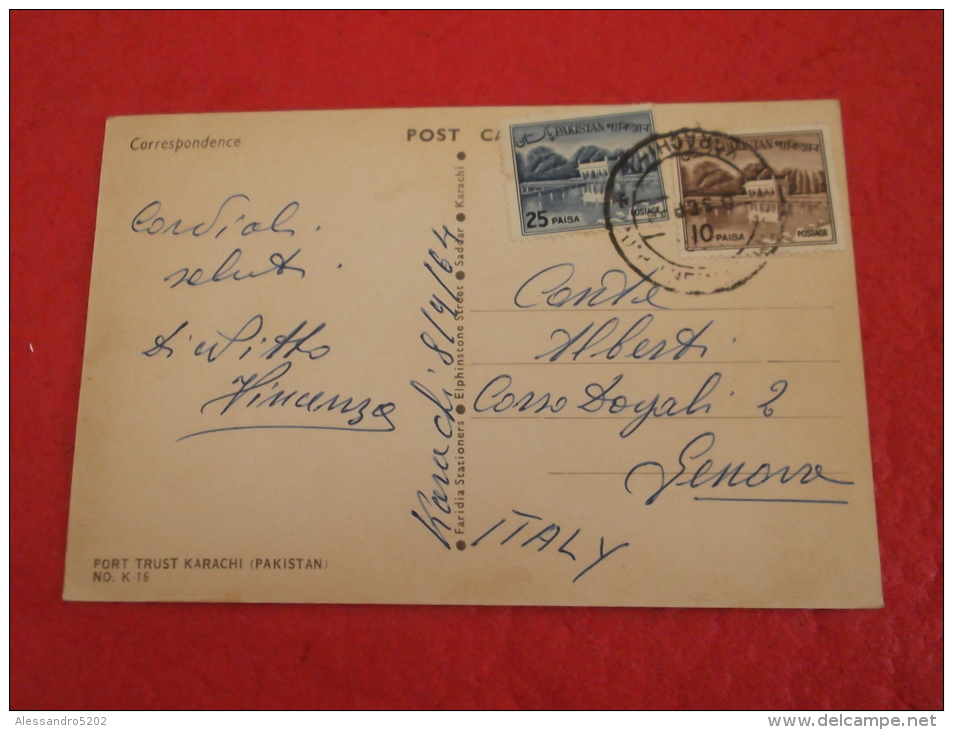 Correspondence
POST CA
پاکستان PAKISTAN পাকিস্তান
25 PAISA POSTAGE
PAKISTAN পাকিস্তান
10 PAISA POSTAGE
KARACHI
8 SEP
Cordiali
saluti
Di Vitto
Vincenzo
Karachi 8/9/64
Faridia Stationers ● Elphinstone Street ● Saddar ● Karachi
Conte
Alberti
Corso Dogali 2
Genova
ITALY
PORT TRUST KARACHI (PAKISTAN)
NO. K-16
Alessandro5202
delcampe.net